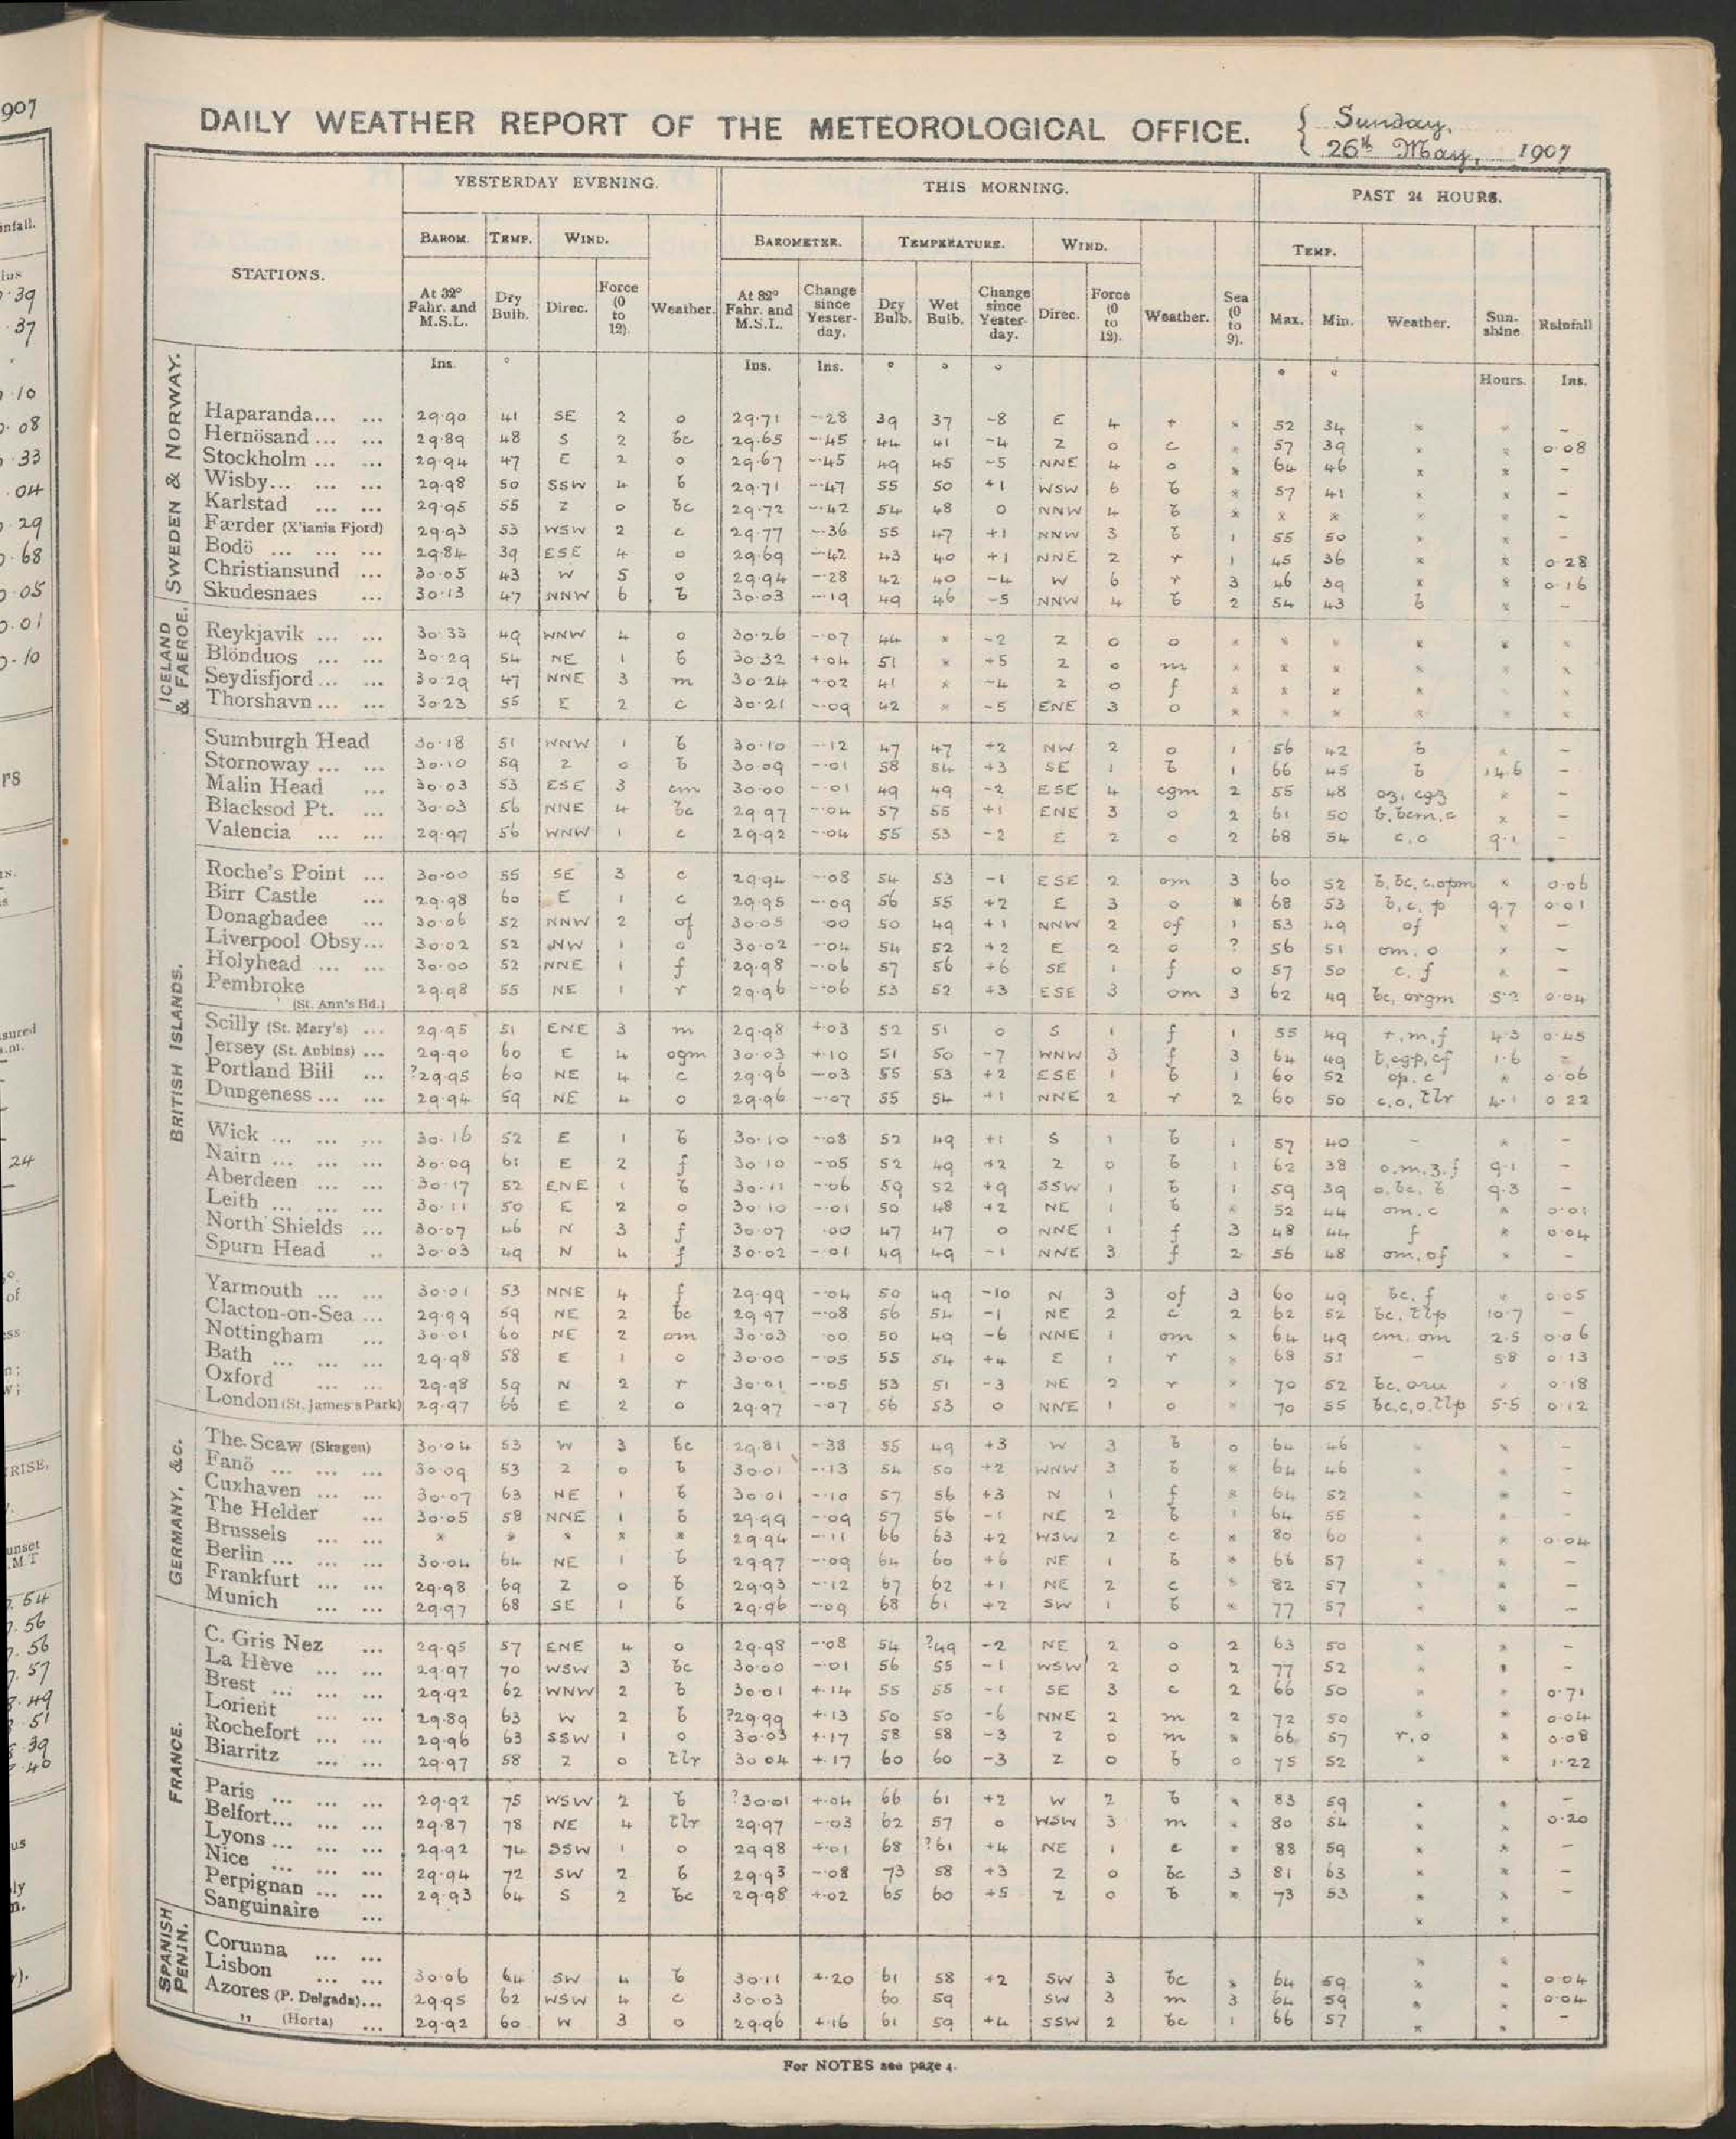 907
DAILY WEATHER REPORT OF THE METEOROLOGICAL OFFICE.
Sunday,
26th May, 1907
YESTERDAY EVENING. THIS MORNING. PAST 24 HOURS.
BAROM. TEMP. WIND. BAROMETER. TEMPERATURE. WIND. TEMP.
STATIONS. At 32° Fahr. and M.S.L. Dry Bulb. Direc. Force (0 to 12). Weather. At 32° Fahr. and M.S.L. Change since Yesterday. Dry Bulb. Wet Bulb. Change since Yesterday. Direc. Force (0 to 12). Weather. Sea (0 to 9). Max. Min. Weather. Sunshine Rainfall
Ins. ° Ins. Ins. ° ° ° ° ° Hours. Ins.
SWEDEN & NORWAY.
Haparanda... ... 29.90 41 SE 2 o 29.71 -.28 39 37 -8 E 4 + × 52 34 × × –
Hernösand ... ... 29.89 48 S 2 bc 29.65 -.45 44 41 -4 Z 0 c × 57 39 × × 0.08
Stockholm ... ... 29.94 47 E 2 o 29.67 -.45 49 45 -5 NNE 4 o × 64 46 × × –
Wisby... ... ... 29.98 50 SSW 4 b 29.71 -.47 55 50 +1 WSW 6 b × 57 41 × × –
Karlstad ... ... 29.95 55 Z 0 bc 29.72 -.42 54 48 0 NNW 4 b × × × × × –
Færder (X'iania Fjord) 29.93 53 WSW 2 c 29.77 -.36 55 47 +1 NNW 3 b 1 55 50 × × –
Bodö ... ... ... 29.84 39 ESE 4 o 29.69 -.42 43 40 +1 NNE 2 r 1 45 36 × × 0.28
Christiansund ... 30.05 43 W 5 o 29.94 -.28 42 40 -4 W 6 r 3 46 39 × × 0.16
Skudesnaes ... 30.13 47 NNW 6 b 30.03 -.19 49 46 -5 NNW 4 b 2 54 43 b × –
ICELAND & FAEROE.
Reykjavik ... ... 30.33 49 WNW 4 o 30.26 -.07 44 × -2 Z 0 o × × × × × ×
Blönduos ... ... 30.29 54 NE 1 b 30.32 +.04 51 × +5 Z 0 m × × × × × ×
Seydisfjord ... ... 30.29 47 NNE 3 m 30.24 +.02 41 × -4 Z 0 f × × × × × ×
Thorshavn ... ... 30.23 55 E 2 c 30.21 -.09 42 × -5 ENE 3 o × × × × × ×
BRITISH ISLANDS.
Sumburgh Head 30.18 51 WNW 1 b 30.10 -.12 47 47 +2 NW 2 o 1 56 42 b × –
Stornoway ... ... 30.10 59 Z 0 b 30.09 -.01 58 54 +3 SE 1 b 1 66 45 b 14.6 –
Malin Head ... 30.03 53 ESE 3 cm 30.00 -.01 49 49 -2 ESE 4 cgm 2 55 48 oz, cgz × –
Blacksod Pt. ... 30.03 56 NNE 4 bc 29.97 -.04 57 55 +1 ENE 3 o 2 61 50 b, bcm, c × –
Valencia ... ... 29.97 56 WNW 1 c 29.92 -.04 55 53 -2 E 2 o 2 68 54 c, o 9.1 –
Roche's Point ... 30.00 55 SE 3 c 29.94 -.08 54 53 -1 ESE 2 om 3 60 52 b, bc, c, opm × 0.06
Birr Castle 29.98 60 E 1 c 29.95 -.09 56 55 +2 E 3 o × 68 53 b, c, p 9.7 0.01
Donaghadee ... 30.06 52 NNW 2 of 30.05 .00 50 49 +1 NNW 2 of 1 53 49 of × –
Liverpool Obsy... 30.02 52 NW 1 o 30.02 -.04 54 52 +2 E 2 o ? 56 51 om, o × –
Holyhead ... ... 30.00 52 NNE 1 f 29.98 -.06 57 56 +6 SE 1 f 0 57 50 c, f × –
Pembroke (St. Ann's Hd.) 29.98 55 NE 1 r 29.96 -.06 53 52 +3 ESE 3 om 3 62 49 bc, orgm 5.2 0.04
Scilly (St. Mary's) ... 29.95 51 ENE 3 m 29.98 +.03 52 51 0 S 1 f 1 55 49 r, m, f 4.3 0.45
Jersey (St. Aubins) ... 29.90 60 E 4 ogm 30.03 +.10 51 50 -7 WNW 3 f 3 64 49 b, cgp, cf 1.6 =
Portland Bill ... ?29.95 60 NE 4 c 29.96 -.03 55 53 +2 ESE 1 b 1 60 52 op, c × 0.06
Dungeness ... ... 29.94 59 NE 4 o 29.96 -.07 55 54 +1 NNE 2 r 2 60 50 c, o, tlr 4.1 0.22
Wick ... ... ... 30.16 52 E 1 b 30.10 -.08 52 49 +1 S 1 b 1 57 40 – × –
Nairn ... ... ... 30.09 61 E 2 f 30.10 -.05 52 49 +2 Z 0 b 1 62 38 o, m, z, f 9.1 –
Aberdeen ... ... 30.17 52 ENE 1 b 30.11 -.06 59 52 +9 SSW 1 b 1 59 39 o, bc, b 9.3 –
Leith ... ... ... 30.11 50 E 2 o 30.10 -.01 50 48 +2 NE 1 b × 52 44 om, c × 0.01
North Shields ... 30.07 46 N 3 f 30.07 .00 47 47 0 NNE 1 f 3 48 44 f × 0.04
Spurn Head .. 30.03 49 N 4 f 30.02 -.01 49 49 -1 NNE 3 f 2 56 48 om, of × –
Yarmouth ... ... 30.01 53 NNE 4 f 29.99 -.04 50 49 -10 N 3 of 3 60 49 bc, f × 0.05
Clacton-on-Sea ... 29.99 59 NE 2 bc 29.97 -.08 56 54 -1 NE 2 c 2 62 52 bc, tlp 10.7 –
Nottingham ... 30.01 60 NE 2 om 30.03 .00 50 49 -6 NNE 1 om × 64 49 cm, om 2.5 0.06
Bath ... ... ... 29.98 58 E 1 o 30.00 -.05 55 54 +4 E 1 r × 68 51 – 5.8 0.13
Oxford ... ... 29.98 59 N 2 r 30.01 -.05 53 51 -3 NE 2 r × 70 52 bc, oru × 0.18
London (St. James's Park) 29.97 66 E 2 o 29.97 -.07 56 53 0 NNE 1 o × 70 55 bc, c, o, tlp 5.5 0.12
GERMANY, &c.
The Scaw (Skagen) 30.04 53 W 3 bc 29.81 -.38 55 49 +3 W 3 b 0 64 46 × × –
Fanö ... ... ... 30.09 53 Z 0 b 30.01 -.13 54 50 +2 WNW 3 b × 64 46 × × –
Cuxhaven ... ... 30.07 63 NE 1 b 30.01 -.10 57 56 +3 N 1 f × 64 52 × × –
The Helder ... 30.05 58 NNE 1 b 29.99 -.09 57 56 -1 NE 2 b 1 64 55 × × –
Brussels ... ... × × × × × 29.94 -.11 66 63 +2 WSW 2 c × 80 60 × × 0.04
Berlin ... ... ... 30.04 64 NE 1 b 29.97 -.09 64 60 +6 NE 1 b × 66 57 × × –
Frankfurt ... ... 29.98 69 Z 0 b 29.93 -.12 67 62 +1 NE 2 c × 82 57 × × –
Munich ... ... 29.97 68 SE 1 b 29.96 -.09 68 61 +2 SW 1 b × 77 57 × × –
FRANCE.
C. Gris Nez ... 29.95 57 ENE 4 o 29.98 -.08 54 ?49 -2 NE 2 o 2 63 50 × × –
La Hève ... ... 29.97 70 WSW 3 bc 30.00 -.01 56 55 -1 WSW 2 o 2 77 52 × × –
Brest ... ... ... 29.92 62 WNW 2 b 30.01 +.14 55 55 -1 SE 3 c 2 66 50 × × 0.71
Lorient ... ... 29.89 63 W 2 b ?29.99 +.13 50 50 -6 NNE 2 m 2 72 50 × × 0.04
Rochefort ... ... 29.96 63 SSW 1 o 30.03 +.17 58 58 -3 Z 0 m × 66 57 r, o × 0.08
Biarritz ... ... 29.97 58 Z 0 tlr 30.04 +.17 60 60 -3 Z 0 b 0 75 52 × × 1.22
Paris ... ... ... 29.92 75 WSW 2 b ?30.01 +.04 66 61 +2 W 2 b × 83 59 × × –
Belfort... ... ... 29.87 78 NE 4 tlr 29.97 -.03 62 57 0 WSW 3 m × 80 54 × × 0.20
Lyons ... ... ... 29.92 74 SSW 1 o 29.98 +.01 68 ?61 +4 NE 1 c × 88 59 × × –
Nice ... ... ... 29.94 72 SW 2 b 29.93 -.08 73 58 +3 Z 0 bc 3 81 63 × × –
Perpignan ... ... 29.93 64 S 2 bc 29.98 +.02 65 60 +5 Z 0 b × 73 53 × × –
Sanguinaire ... × ×
SPANISH PENIN.
Corunna ... ... × ×
Lisbon ... ... 30.06 64 SW 4 b 30.11 +.20 61 58 +2 SW 3 bc × 64 59 × × 0.04
Azores (P. Delgada)... 29.95 62 WSW 4 c 30.03 60 59 SW 3 m 3 64 59 × × 0.04
" (Horta) ... 29.92 60 W 3 o 29.96 +.16 61 59 +4 SSW 2 bc 1 66 57 × × –
For NOTES see page 4.